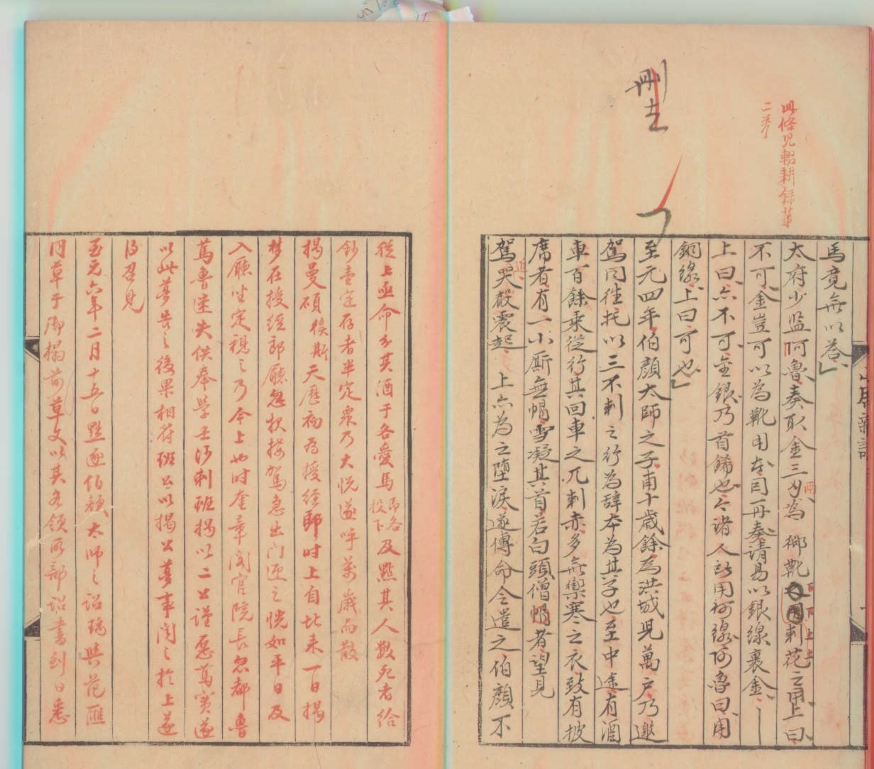 此條見輟耕錄第
二卷
刪去
馬竟無以答」
太府少監阿魯奏取金三兩為御靴刺花之用上曰
不可金豈可以為靴用本司再奏請易以銀線裹金之
上曰亦不可金銀乃首飾也今諸人所用何線阿魯曰用
銅線上曰可也」
至元四年伯顏太師之子甫十歲餘為洪城兒萬戶乃邀
駕同往托以三不剌之行為辭本為其子也至中途有酒
車百餘乘從行其回車之兀剌赤多無禦寒之衣致有披
席者有一小厮無帽雪凝其首若白頭僧帽者望見
駕近哭聲震起上亦為之墮淚遂傳命令遣之伯顏不
從上亟命分其酒于各愛馬即各投下及點其人數死者給
鈔壹定存者半定衆乃大悅遂呼萬歲而散
揭曼碩傒斯天歷初為授經郎時上自北來一日揭
夢在授經郎廳忽報接駕急出門迎之恍如平日及
入廳坐定視之乃今上也時奎章閣官院長忽都魯
篤魯迷失供奉學士沙剌班揭以二公謹愿篤實遂
以此夢告之後果相符班公以揭公夢事聞之於上遂
得召見
至元六年二月十五日黜逐伯顏太師之詔瑀與范匯
同草于御榻前草文以其各領所部詔書到日悉